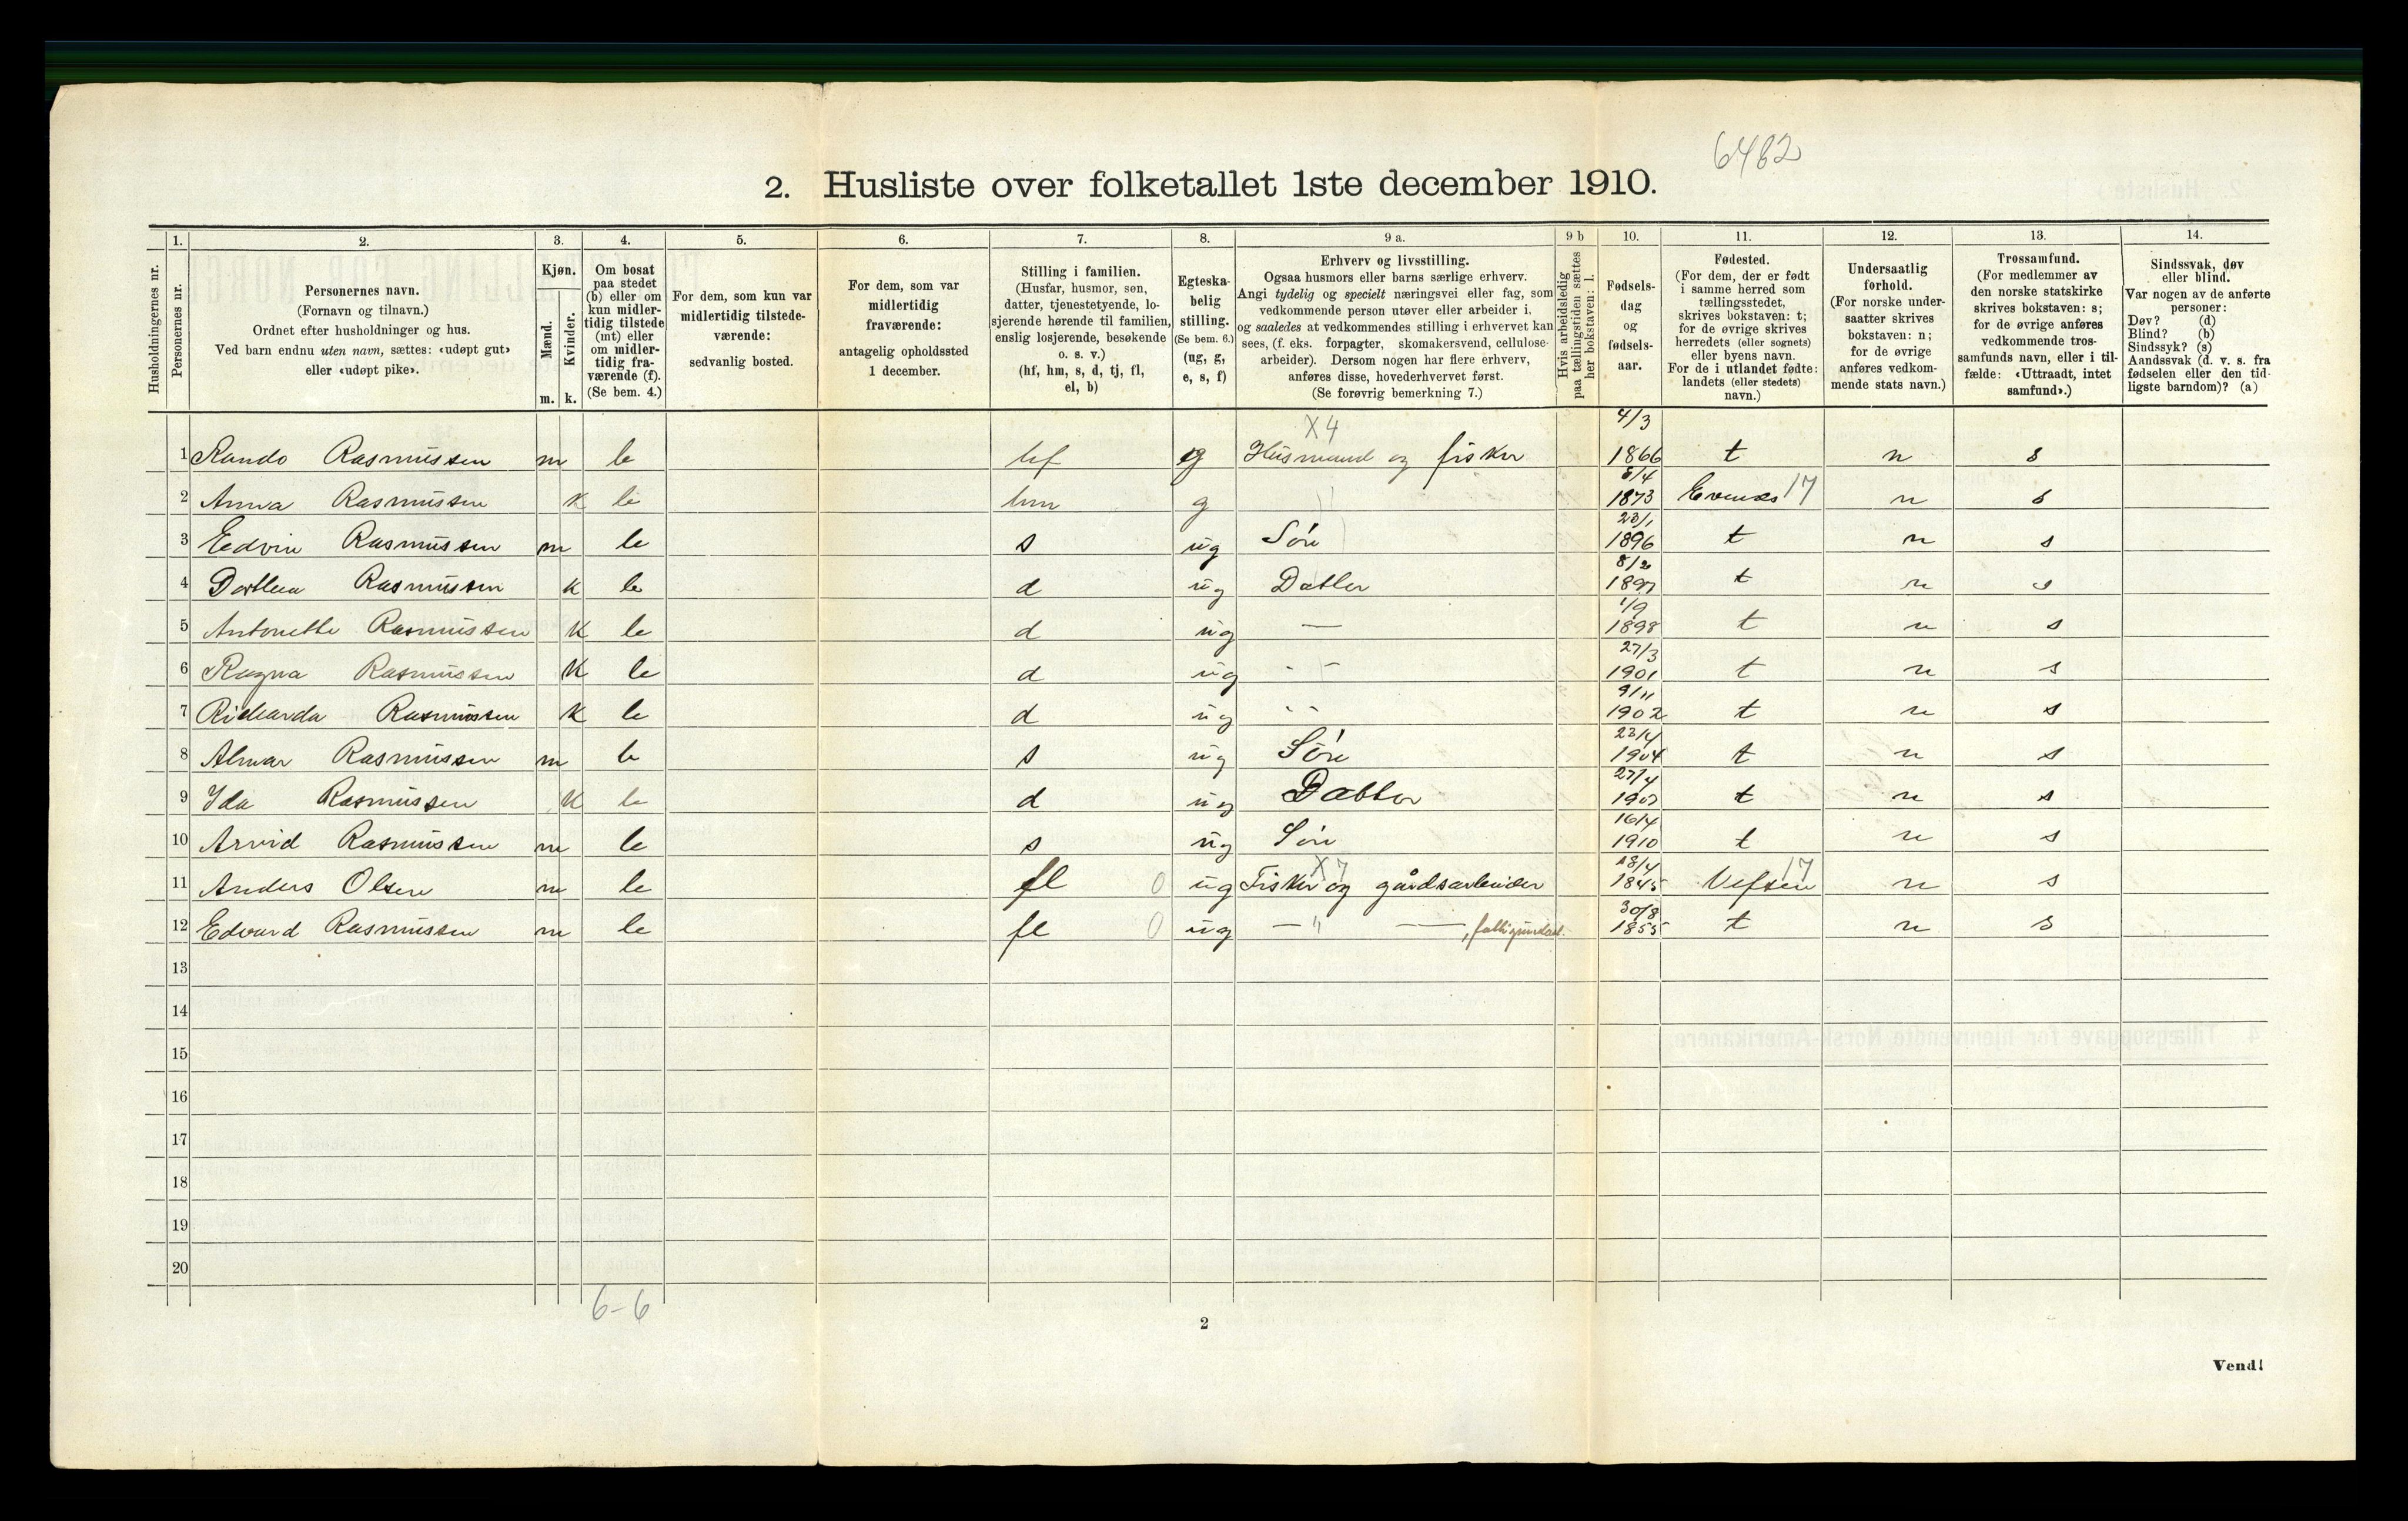 6482
2. Husliste over folketallet 1ste december 1910.
Husholdningernes nr.
1. Personernes nr.
2. Personernes navn.
(Fornavn og tilnavn.)
Ordnet efter husholdninger og hus.
Ved barn endnu uten navn, sættes: «udøpt gut»
eller «udøpt pike».
3. Kjøn.
Mænd. m.
Kvinder. k.
4. Om bosat
paa stedet
(b) eller om
kun midler-
tidig tilstede
(mt) eller
om midler-
tidig fra-
værende (f).
(Se bem. 4.)
5. For dem, som kun var
midlertidig tilstede-
værende:
sedvanlig bosted.
6. For dem, som var
midlertidig
fraværende:
antagelig opholdssted
1 december.
7. Stilling i familien.
(Husfar, husmor, søn,
datter, tjenestetyende, lo-
sjerende hørende til familien,
enslig losjerende, besøkende
o. s. v.)
(hf, hm, s, d, tj, fl,
el, b)
8. Egteska-
belig
stilling.
(Se bem. 6.)
(ug, g,
e, s, f)
9 a. Erhverv og livsstilling.
Ogsaa husmors eller barns særlige erhverv.
Angi tydelig og specielt næringsvei eller fag, som
vedkommende person utøver eller arbeider i,
og saaledes at vedkommendes stilling i erhvervet kan
sees, (f. eks. forpagter, skomakersvend, cellulose-
arbeider). Dersom nogen har flere erhverv,
anføres disse, hovederhvervet først.
(Se forøvrig bemerkning 7.)
9 b Hvis arbeidsledig
paa tællingstiden sættes
her bokstaven: l.
10. Fødsels-
dag
og
fødsels-
aar.
11. Fødested.
(For dem, der er født
i samme herred som
tællingsstedet,
skrives bokstaven: t;
for de øvrige skrives
herredets (eller sognets)
eller byens navn.
For de i utlandet fødte:
landets (eller stedets)
navn.)
12. Undersaatlig
forhold.
(For norske under-
saatter skrives
bokstaven: n;
for de øvrige
anføres vedkom-
mende stats navn.)
13. Trossamfund.
(For medlemmer av
den norske statskirke
skrives bokstaven: s;
for de øvrige anføres
vedkommende tros-
samfunds navn, eller i til-
fælde: «Uttraadt, intet
samfund».)
14. Sindssvak, døv
eller blind.
Var nogen av de anførte
personer:
Døv? (d)
Blind? (b)
Sindssyk? (s)
Aandssvak (d. v. s. fra
fødselen eller den tid-
ligste barndom)? (a)
X4 4/3
1 Rando Rasmussen m b hf g Husmand og fisker 1866 t n s
2 Anna Rasmussen k b hm g 5/4 1873 Evenes 17 n s
3 Eedvin Rasmussen m b s ug Søn 23/1 1896 t n s
4 Dorthea Rasmussen k b d ug Datter 8/2 1897 t n s
5 Antonette Rasmussen k b d ug — 1/9 1898 t n s
6 Ragna Rasmussen k b d ug - - 27/3 1901 t n s
7 Richarda Rasmussen k b d ug - - 9/11 1902 t n s
8 Almar Rasmussen m b s ug Søn 23/4 1904 t n s
9 Ida Rasmussen k b d ug Datter 27/4 1907 t n s
10 Arvid Rasmussen m b s ug Søn 16/4 1910 t n s
11 Anders Olsen m b fl 0 ug X7 Fisker og gårdsarbeider 18/4 1845 Vefsen 17 n s
12 Edvard Rasmussen m b fl 0 ug — " — , 30/8 1855 t n s
13
14
15
16
17
18
19
20
6-6
2
Vend!